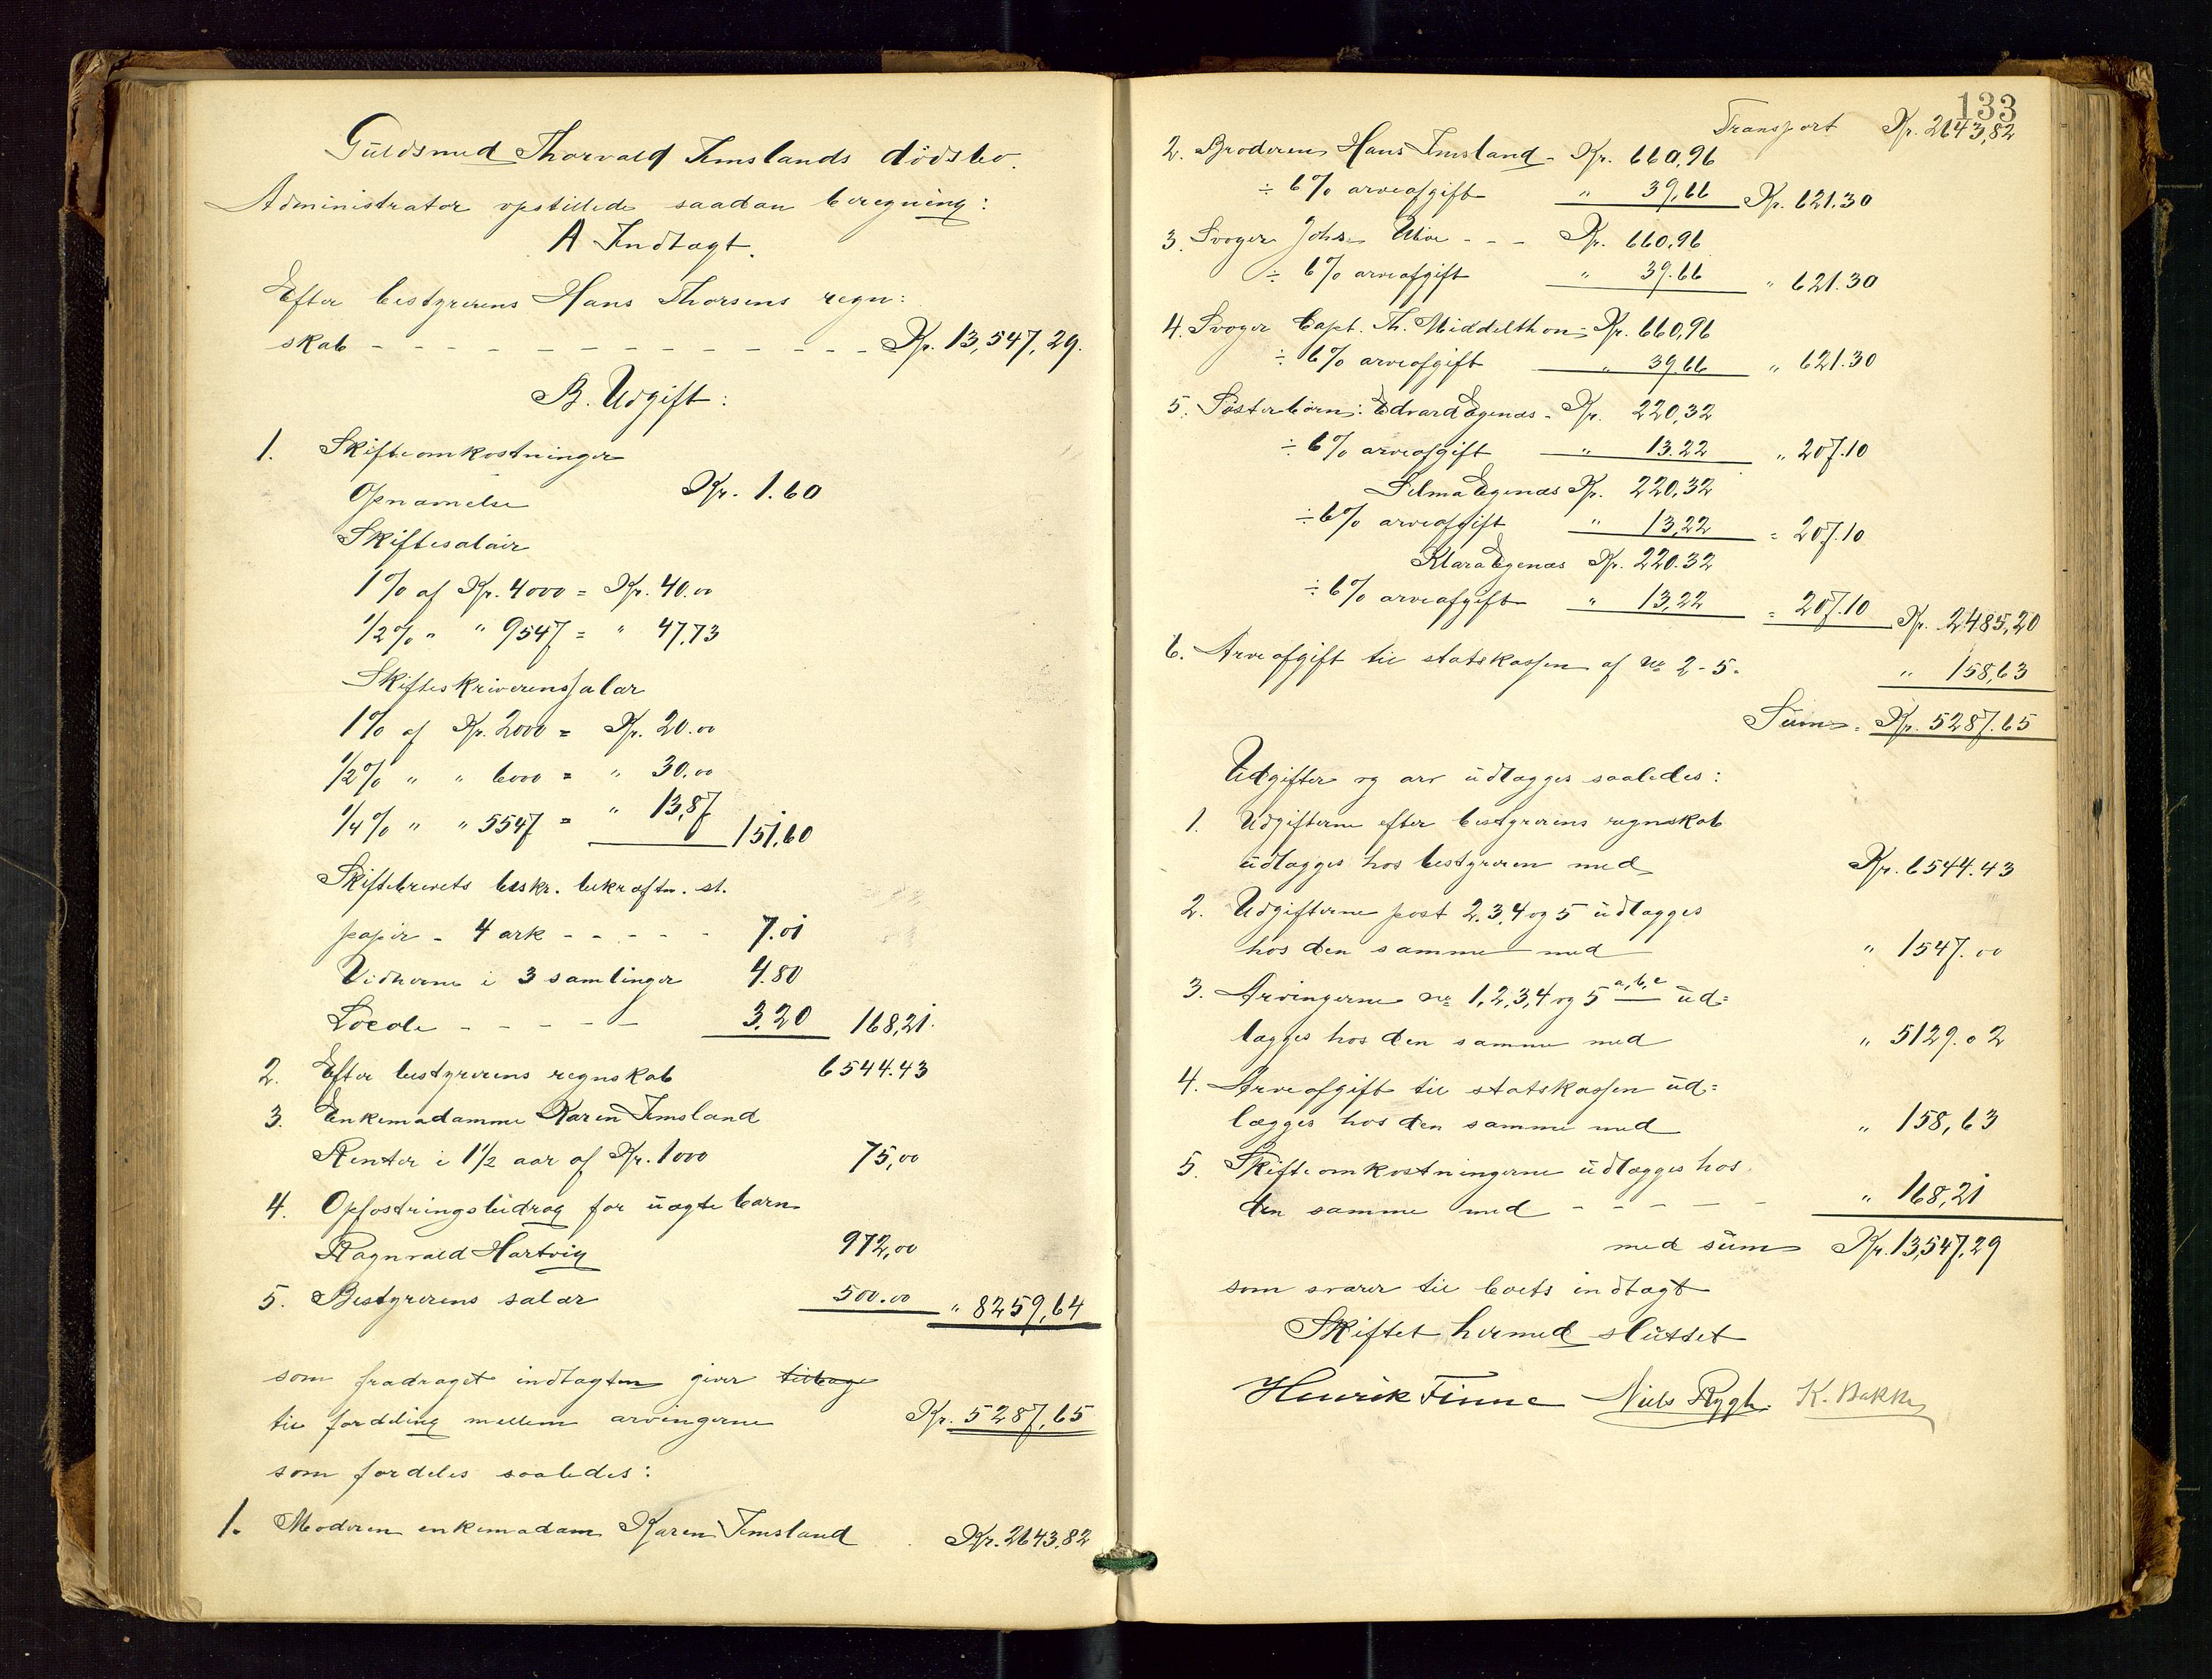 Guldsmed Thorvald Imslands dödsbo.
Administrator opstillede saadan beregning:
A Indtægt.
Efter bestyrerens Hans Thorsens regn:
skab - - - - - - - - - - - - - Kr. 13,547,29.
B. Udgift:
1. Skifteomkostninger
Opnævnelse Kr. 1.60
Skiftesalair
1% af Kr. 4000 = Kr. 40.00
1/2% " " 9547 = " 47,73
Skifteskriverens salar
1% af Kr. 2000 = Kr. 20.00
1/2% " " 6000 = " 30.00
1/4% " " 5547 = " 13,87 151,60
Skiftebrevets beskr. bekræftn. st.
papir - 4 ark - - - - - 7.01
Vidnerne i 3 samlinger 4.80
Locale - - - - - 3,20 168,21.
2. Efter bestyrerens regnskab 6544.43
3. Enkemadamme Karen Imsland
Renter i 1 1/2 aar af Kr. 1000 75,00
4. Opfostringsbidrag for uægte barn
Ragnvald Hartvig 972,00
5. Bestyrerens salar 500.00 " 8259,64
som fradraget indtægten giver tilbage
til fordeling mellem arvingerne Kr. 5287,65
som fordeles saaledes:
1. Moderen enkemadam Karen Imsland Kr. 2643,82
133
Transport Kr. 2643,82
2. Broderen Hans Imsland - Kr. 660,96
÷ 6% arveafgift " 39,66 Kr. 621.30
3. Svoger Johs. - - - Kr. 660,96
÷ 6% arveafgift " 39.66 " 621.30
4. Svoger Capt. Th. Middelthon - Kr. 660,96
÷ 6% arveafgift " 39.66 " 621.30
5. Søsterbørn: Edvard Egenæs - Kr. 220,32
÷ 6% arveafgift " 13.22 " 207.10
Selma Egenæs Kr. 220,32
÷ 6% arveafgift " 13,22 = 207.10
Klara Egenæs Kr. 220.32
÷ 6% arveafgift " 13,22 = 207.10 Kr. 2485,20
6. Arveafgift til statskassen af No 2-5. " 158,63
Sum = Kr. 5287.65
Udgifter og arv udlægges saaledes:
1. Udgifterne efter bestyrerens regnskab
udlægges hos bestyreren med Kr. 6544.43
2. Udgifterne post 2.3.4 og 5 udlægges
hos den samme med " 1547.00
3. Arvingerne No 1,2,3,4 og 5 a,b,c ud=
lægges hos den samme med " 5129.02
4. Arveafgift til statskassen ud=
lægges hos den samme med " 158,63
5. Skifteomkostningerne udlægges hos
den samme med - - - - - " 168,21
med sum Kr. 13,547,29
som svarer til boets indtægt
Skiftet hermed sluttet
Henrik Finne Niels Rygh. K. Bakke